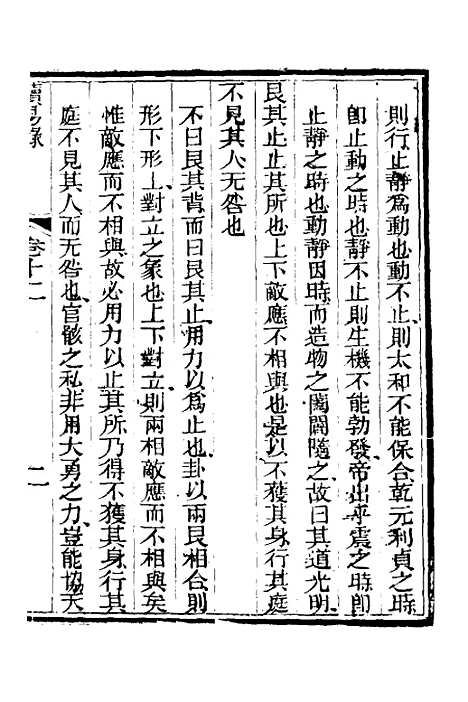 則行止靜爲動也動不止則太和不能保合乾元利貞之時
卽止動之時也靜不止則生機不能勃發帝出乎震之時卽
止靜之時也動靜因時而造物之闔闢隨之故曰其道光明
艮其止止其所也上下敵應不相與也是以不獲其身行其庭
不見其人无咎也
不曰艮其背而曰艮其止用力以爲止也卦以兩艮相合則
形下形上對立之象也上下對立則兩相敵應而不相與矣
惟敵應而不相與故必用力以止其所乃得不獲其身行其
庭不見其人而无咎也官骸之私非用大勇之力豈能協天
讀易錄
卷十二
二